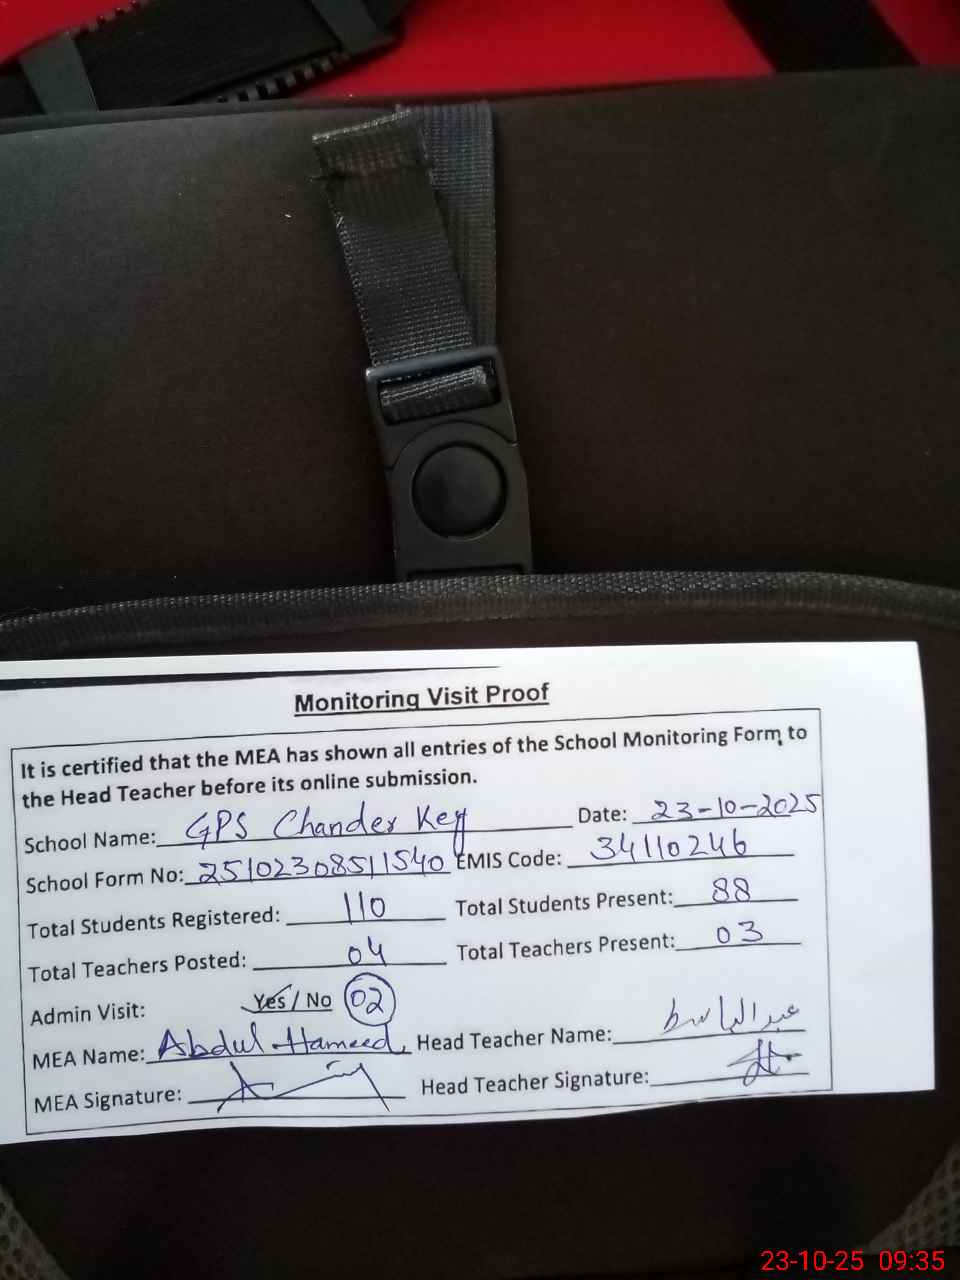 Monitoring Visit Proof
It is certified that the MEA has shown all entries of the School Monitoring Form to
the Head Teacher before its online submission.
School Name: GPS Chander Key Date: 23-10-2025
School Form No: 25102308511540 EMIS Code: 34110246
Total Students Registered: 110 Total Students Present: 88
Total Teachers Posted: 04 Total Teachers Present: 03
Admin Visit: Yes / No 02
MEA Name: Abdul Hameed Head Teacher Name: عبدالباسط
MEA Signature: Head Teacher Signature:
23-10-25 09:35